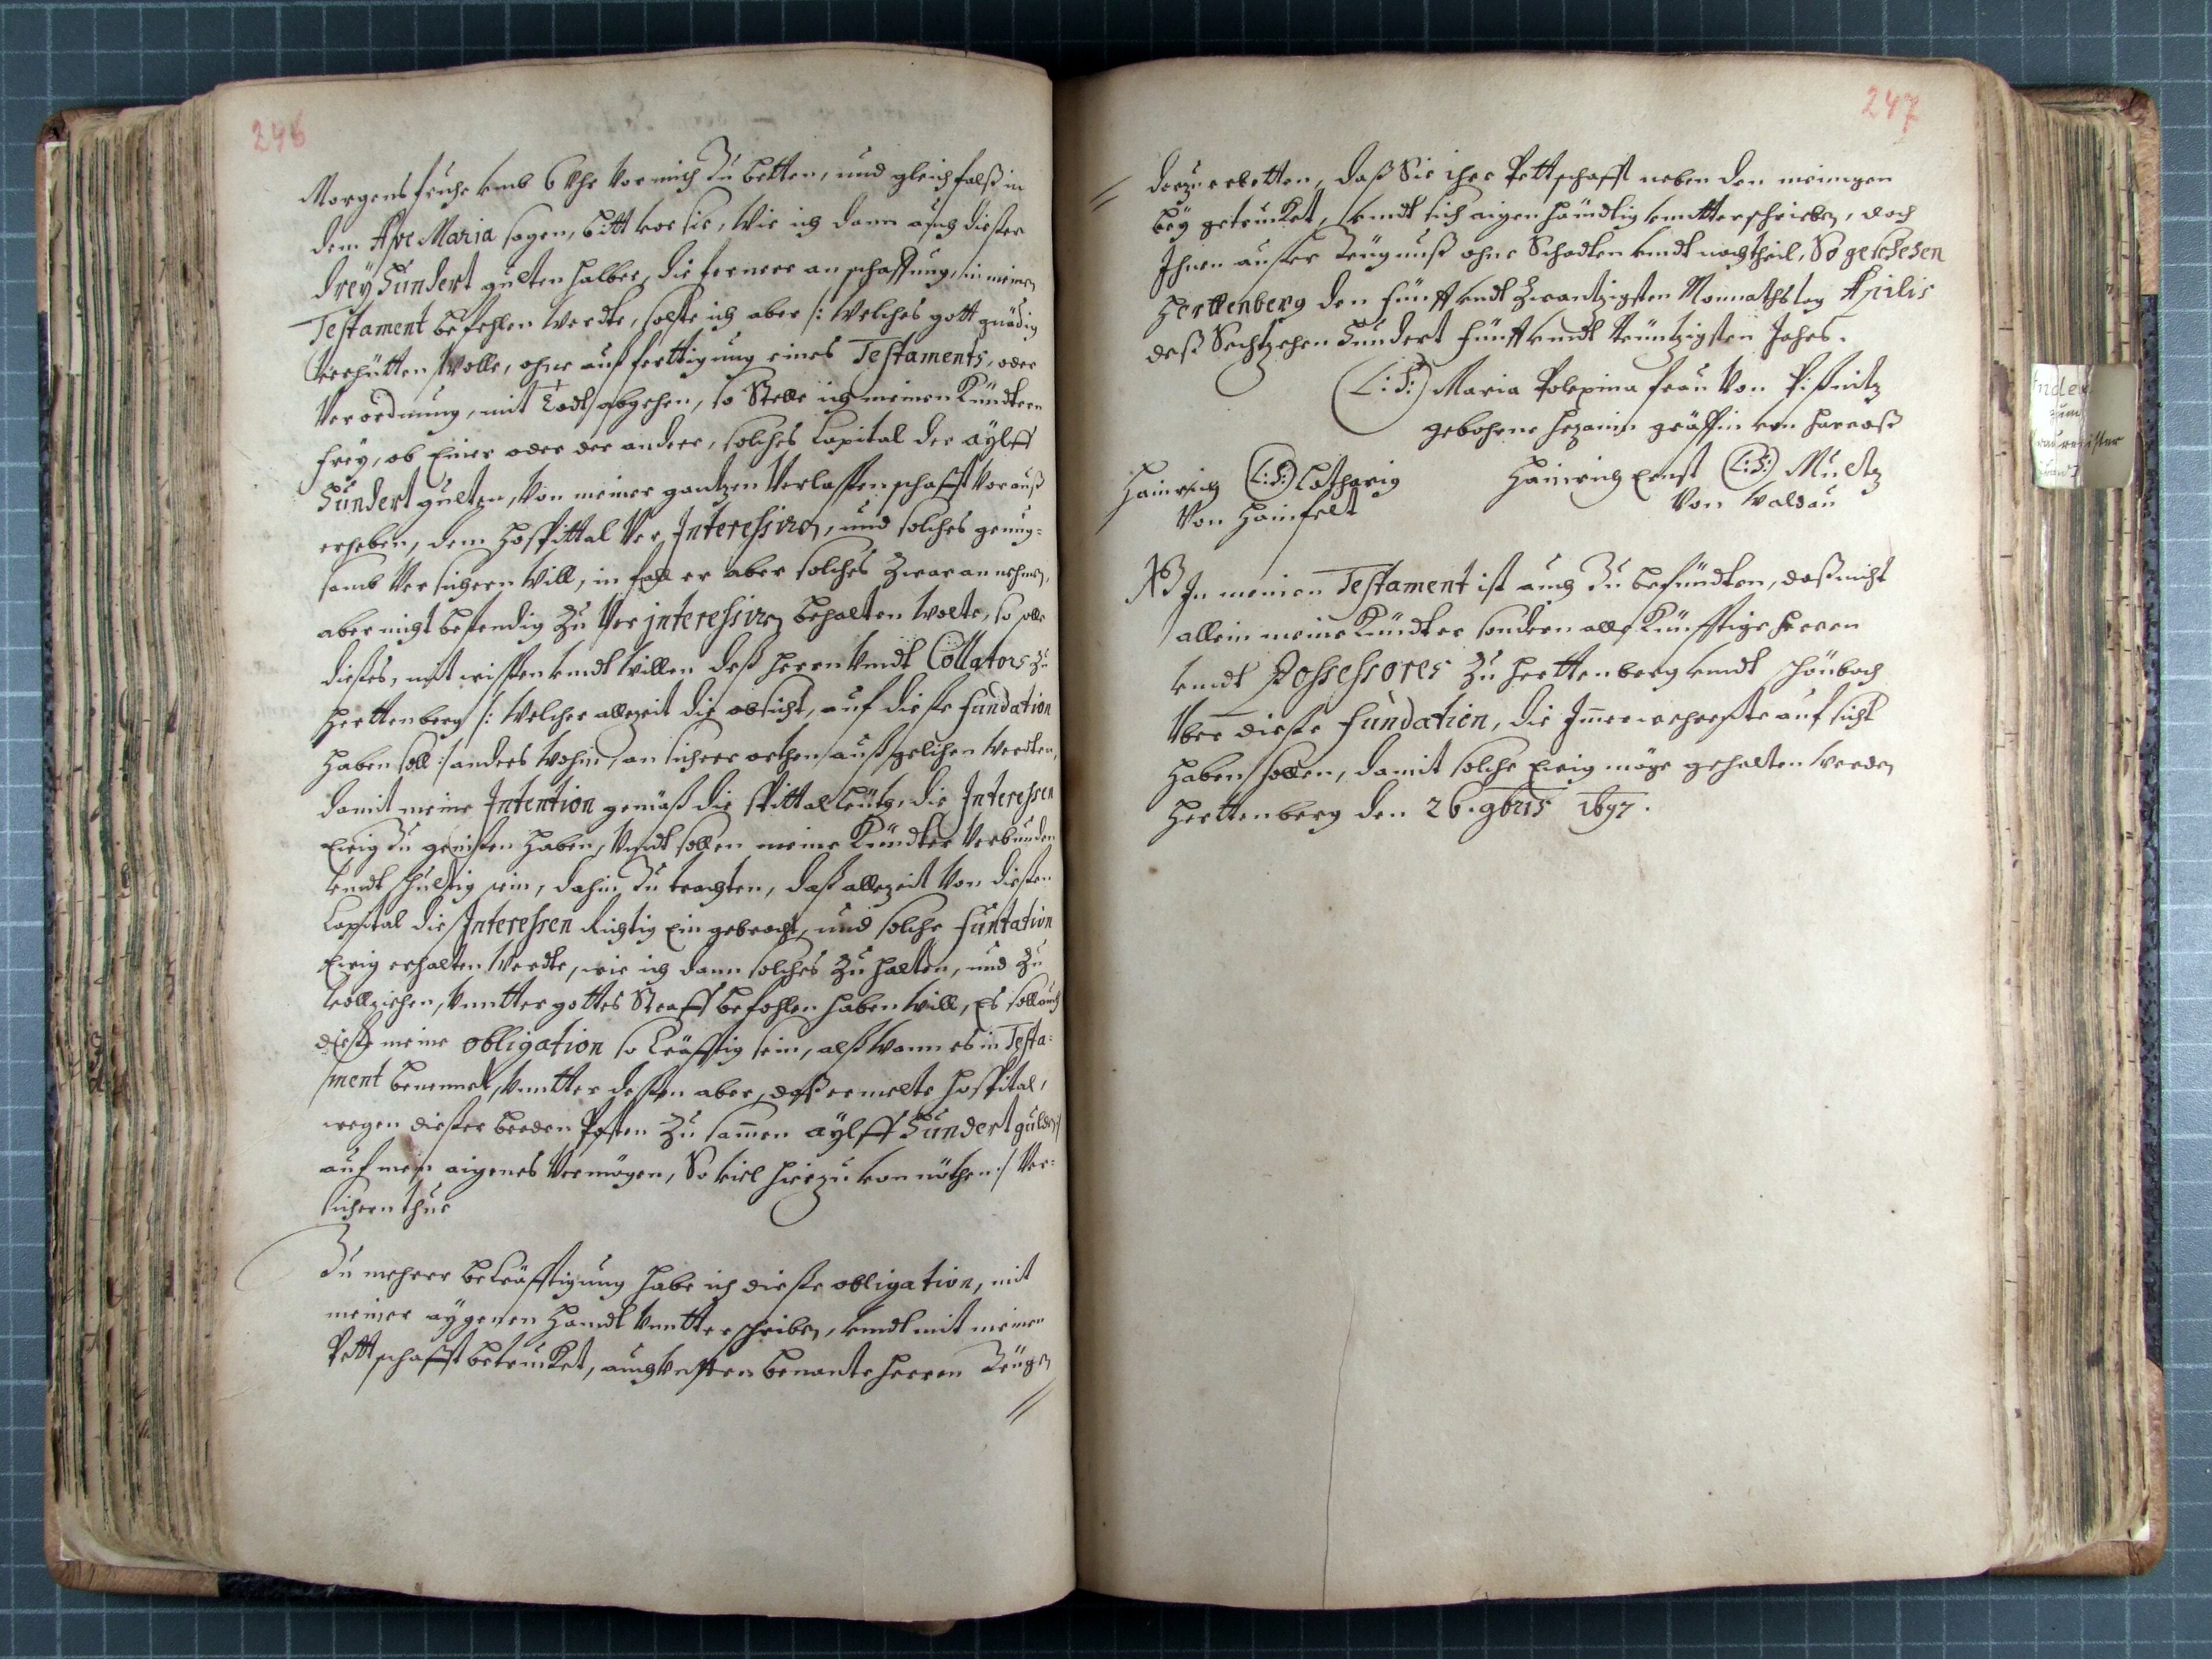 246
Morgens fruhe umb 6 Uhr vor mich zu betten, und gleichfalß in
dem Ave Maria sagen, bitt vor sie, Wie ich dann auch dießer
drey hundert gulten halber, die fernere anschaffung, in meinen
Testament befehlen werdte, solte ich aber /: Welches gott gnädig
Verhütten wolle, ohne auß fertigung eines Testaments, oder
Verordnung, mit Todt abgehen, so Stelle ich meinen Kündtern
frey, ob Einer oder der andere, solches Capital der äylff
hundert gulten, Von meiner gantzen Verlassenschafft Vorauß
erheben, dem Hospittal Ver Interessiren, und solches genug-
samb Versichern Will, in fall er aber solches zwar an nehmen,
aber nicht bestendig zu Ver interessiren behalten wolte, so solle
dießes, mit wissten undt willen deß Herrn undt Collators zu
Herttenberg /: Welcher allezeit die obsicht, auf dieße fundation
haben soll :/ anders wohin, an sichere orthen außgelihen werdten,
damit meine Intention gemäß die spittal Leüthe, die Interessen
Ewig zu genissen haben, Undt sollen meine Kündter Verbunden
undt schultig sein, dahin zu trachten, daß allezeit Von dießen
Capital die Interessen Richtig Ein gebracht, und solche funtation
Ewig erhalten Werdte, wie ich dann solches zu halten, und zu
vollziehen, Untter gottes Straff befohlen haben will, Es soll auch
dieße meine obligation so kräfftig sein, alß wann es in Testa-
ment benennet, Untter dessen aber, daß ermelte Hospital,
wegen dießer beeden Posten zu samen äylff hundert gulden
auf mein aigenes Vermögen, So viel hierzu von nöthen :/ Ver-
sichern thue
Zu mehrer bekräfftigung habe ich dieße obligation, mit
meiner äygenen Handt Untterschriben, undt mit meinen
Pettschafft betrucket, auch Unten benante Herren Zeügen
//
247
// darzu erbetten, daß Sie ihre Pettschafft neben den meinigen
bey getrucket, undt sich aigenhändtig Untterschrieben, doch
Ihnen außer Zeügnuß ohne Schadten undt nachtheil, So geschehen
Herttenberg den fünff undt Zwantzigsten Monnathstag Aprilis
deß Sechtzehen hundert fünff undt Neüntzigsten Jahrs.
(L:S:) Maria Polexina frau Von Pißnitz
gebohrne gräffin von Harraß
Hainrich (L:S:) Lotharig
Von Hainfelt
Hainrich Ernst (L:S:) Multz
Von Waldau
NB In meinen Testament ist auch zu befündten, daß nicht
allein meine Kündter sondern alle Künfftige Herren
undt Possessores zu Herttenberg undt Schönbach
Uber dieße fundation, die aufsicht
haben sollen, damit solche Ewig möge gehalten werden
Herttenberg den 26. 9bris 1697.
Index
zum